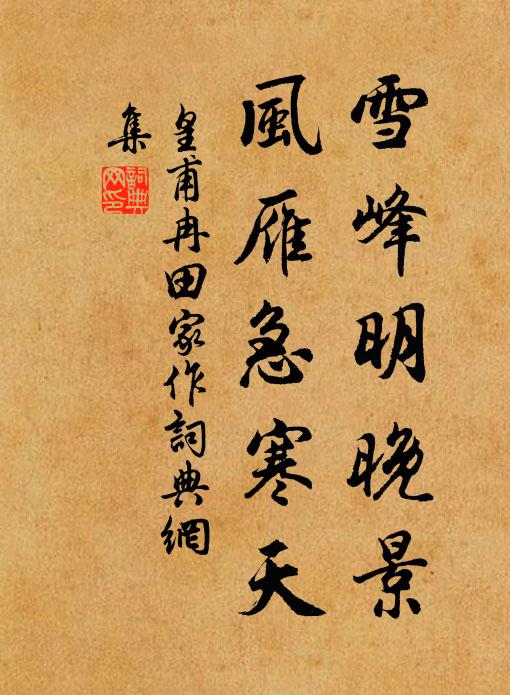 雪峰明晚景
風雁急寒天
皇甫冉田家作詞典網
集
詞典
网印